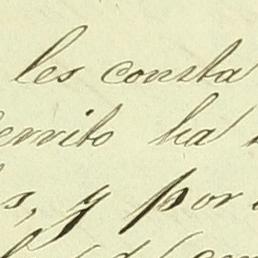 les consta
errito ha
s, y por